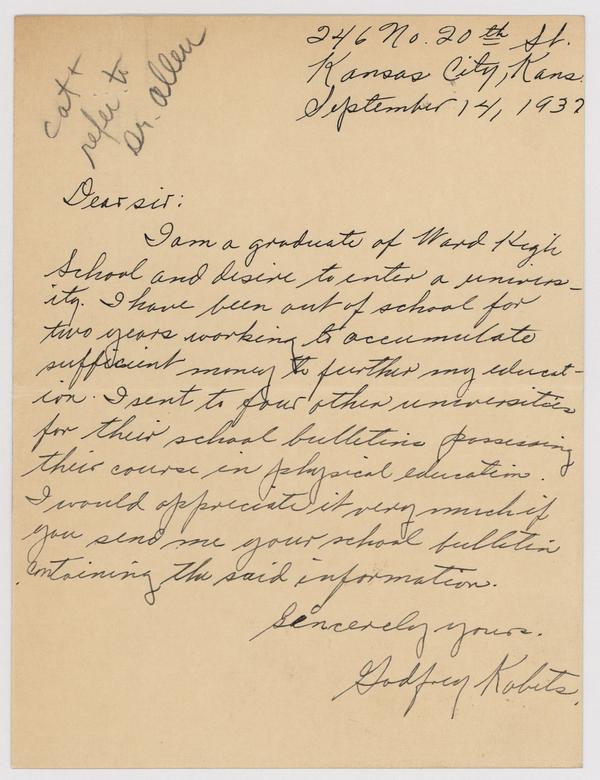 cat +
refer to
Dr. Allen
246 No. 20th St.
Kansas City, Kans.
September 14, 1937
Dear sir:
I am a graduate of Ward High
School and desire to enter a univers-
ity. I have been out of school for
two years working to accumulate
sufficient money to further my educat-
ion. I sent to four other universities
for their school bulletins possessing
their course in physical education.
I would appreciate it very much if
you send me your school bulletin
containing the said information.
Sincerely yours.
Godfrey Kobets.